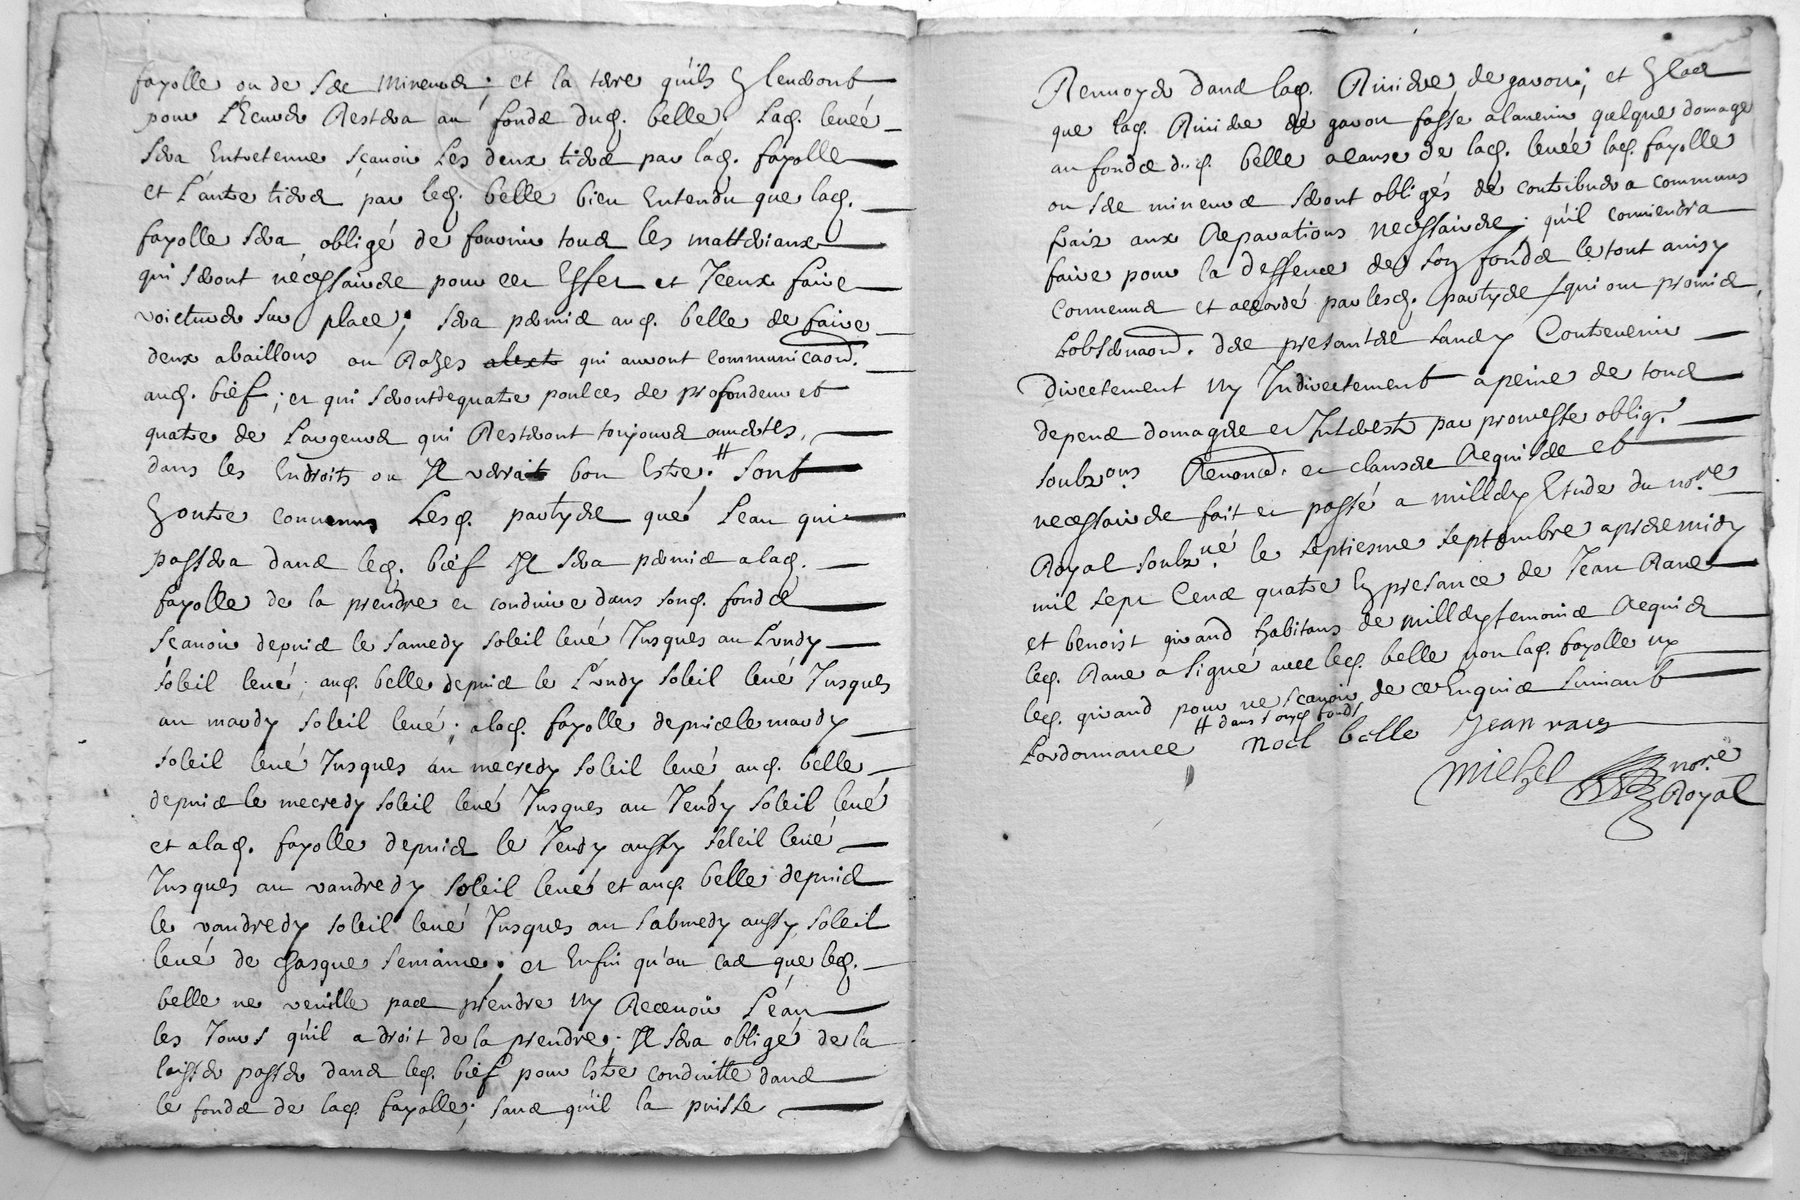 fayolle ou de ses mineurs; et la terre quils Enleveront
pour L'Ecurer Restera au fonds dud. belle, Lad. levée
sera Entretenue sçavoir Les deux tiers par lad. fayolle
et L'autre tiers par led. belle bien Entendu que lad.
fayolle sera obligé de fournir tous les matteriaux
qui seront nécessaires pour cet Effet et Iceux faire
voicturer sur place; sera permis aud. belle de faire
deux abaillons ou Rases qui auront communicaon.
aud. bief; et qui seront de quatre poulces de profondeur et
quatre de Largeur qui Resteront toujours ouvertes,
dans les Endroits ou Il verra bon Estre. # sont
En outre convenus Lesd. partyes que L'eau qui
passera dans led. bief Il sera permis a lad.
fayolle de la prendre et conduire dans sond. fonds
sçavoir depuis le samedy soleil levé Jusques au Lundy
soleil levé; aud. belle depuis le Lundy soleil levé Jusques
au mardy soleil levé; a lad. fayolle depuis le mardy
soleil levé Jusques au mecredy soleil levé, aud. belle
depuis le mecredy soleil levé Jusques au Jeudy soleil levé
et a lad. fayolle depuis le Jeudy aussy soleil levé
Jusques au vandredy soleil levé et aud. belle depuis
le vandredy soleil levé Jusques au sabmedy aussy soleil
levé de chasque semaine; et Enfin qu'au cas que led.
belle ne veuille pas prendre ny Recevoir L'eau
les Jours qu'il a droit de la prendre; Il sera obligé de la
laisser passer dans led. bief pour Estre conduitte dans
le fonds de lad. fayolle; sans qu'il la puisse
Renvoyer dans lad. Riviere de gavon; et En cas
que lad. Riviere de gavon fasse a lavenir quelque domage
au fonds dud. belle a cause de lad. levée lad. fayolle
ou ses mineurs seront obligés de contribuer a communs
fraix aux Reparations necessaires; qu'il conviendra
faire pour la deffence de son fonds le tout ainsy
convenus et accordé par lesd. partyes, qui ont promis
Lobservaon. des presantes sans y Contrevenir
directement ny Indirectement a peine de tous
depens domages et Interests par promesse oblig.
soubzons Renoncé. et clauses Requises et
necessaires fait et passé a millery Etude du nore
Royal soubzné le septiesme septembre apres midy
mil sept Cens quatre En presance de Jean Rave
et benoist girand habitans de millery temoins Requis
led. Rave a signé avec led. belle non lad. fayolle ny
led. girand pour ne sçavoir de ce Enquis suivant
Lordonnance # dans sond. fonds
noel belle Jean rave
michel nore
Royal